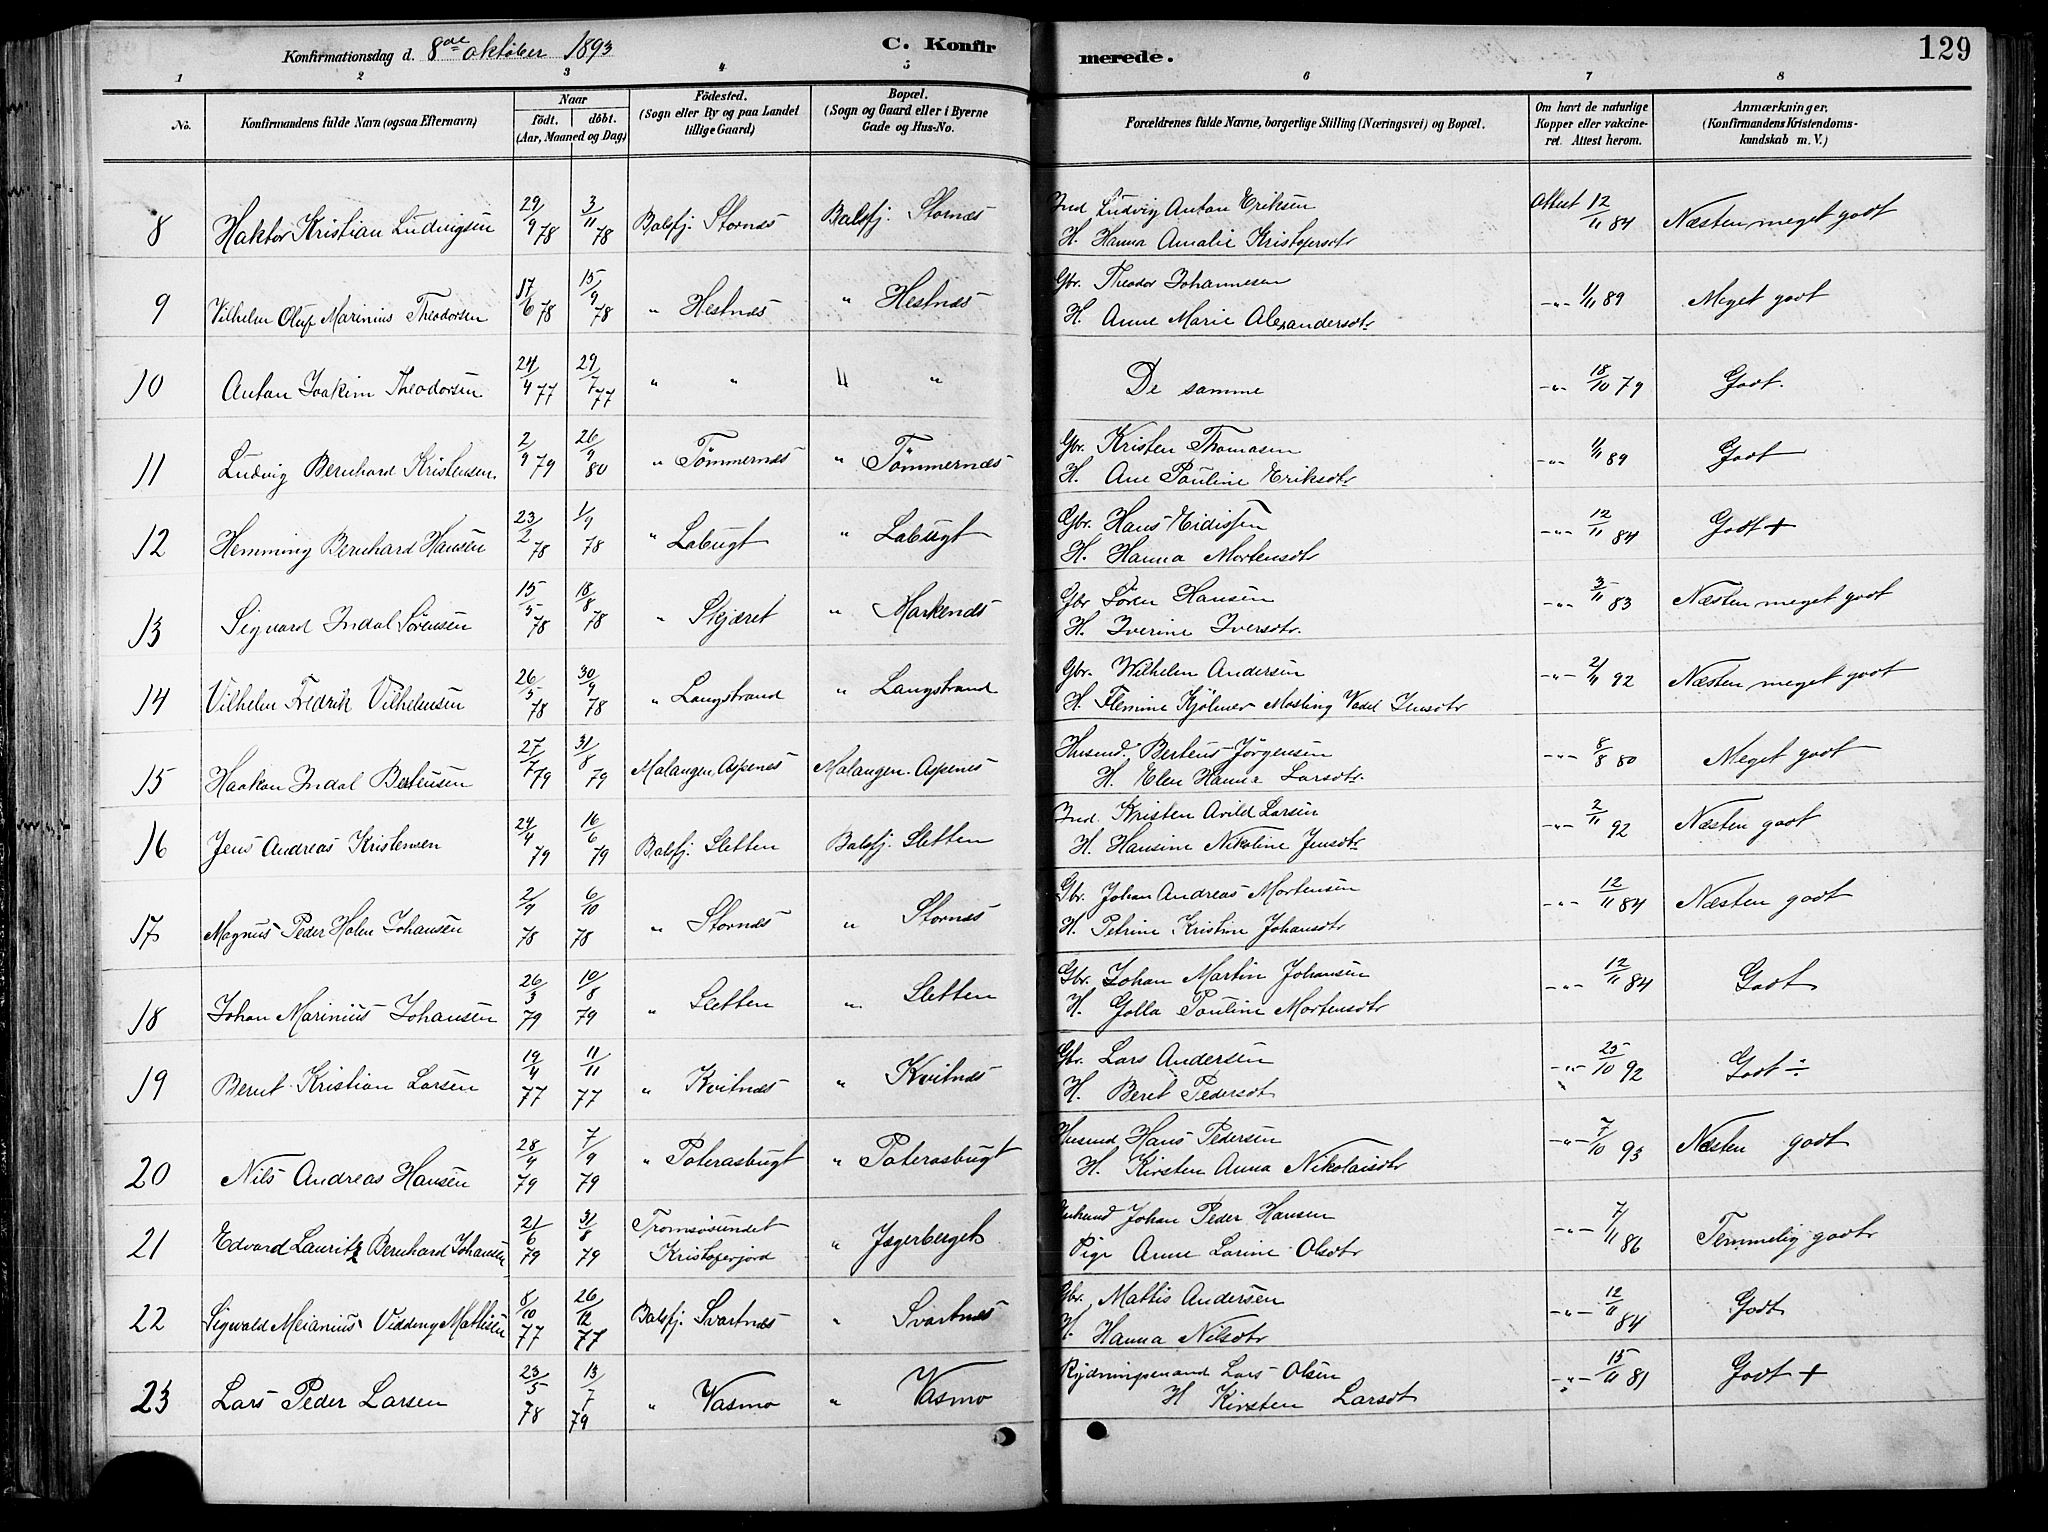 Konfirmationsdag d. 8de oktober 1893
C. Konfir
merede.
129
1 2 3 4 5 6 7 8
No.
Konfirmandens fulde Navn (ogsaa Efternavn)
Naar
födt. döbt.
(Aar, Maaned og Dag)
Födested.
(Sogn eller By og paa Landet
tillige Gaard)
Bopæl.
(Sogn og Gaard eller i Byerne
Gade og Hus-No.
Forældrenes fulde Navne, borgerlige Stilling (Næringsvei) og Bopæl.
Om havt de naturlige
Kopper eller vakcine-
ret. Attest herom.
Anmærkninger.
(Konfirmandens Kristendoms-
kundskab m. V.)
8 Haktor Kristian Ludvigsen 29/9 78 3/11 78 Balsfj. Stornes Balsfj. Stornes Ind Ludvig Anton Eriksen Attest 12/11 84 Næsten meget godt
H. Hanna Amalie Kristofersdtr
9 Vilhelm Oluf Marinius Theodorsen 17/6 78 15/9 78 " Hestnes " Hestnes Gbr. Theodor Johannesen -"- 1/11 89 Meget godt
H. Anne Marie Alexandersdtr
10 Anton Joakim Theodorsen 24/4 77 29/7 77 " " " " De samme -"- 18/10 79 Godt.
11 Ludvig Bernhard Kristensen. 2/9 79 26/9 80 " Tömmernes " Tömmernes Gbr. Kristen Thomasen -"- 1/11 89 Godt
H. Ane Pauline Eriksdtr
12 Hemming Bernhard Hansen 23/2 78 1/9 78 " Labugt " Labugt Gbr. Hans Eidissen -"- 12/11 84 Godt +
H. Hanna Mortensdtr
13 Sigvard Indal Sörensen 15/5 78 18/8 78 " Skjæret " Markenes Gbr Sören Hansen -"- 3/11 83 Næsten meget godt
H. Iverine Iversdtr.
14 Vilhelm Fredrik Vilhelmsen 26/5 78 30/9 78 " Langstrand " Langstrand Gbr. Wilhelm Andersen -"- 2/11 92 Næsten meget godt
H. Flemine Kjölmer Mösling Vadel Jensdtr
15 Haakon Indal Berteusen 27/7 79 31/8 79 Malangen, Aspenes Malangen. Aspenes Husmd. Berteus Jörgensen -"- 8/8 80 Meget godt
H. Elen Hanna Larsdtr.
16 Jens Andreas Kristensen 24/4 79 16/6 79 Balsfj. Sletten Balsfj. Sletten Ind. Kristen Arild Larsen -"- 2/11 92 Næsten godt
H. Hansine Nikoline Jensdtr
17 Magnus Peder Holm Johansen 2/9 78 6/10 78 " Stornes " Stornes Gbr. Johan Andreas Mortensen -"- 12/11 84 Næsten godt
H. Petrine Kristine Johansdtr
18 Johan Marinius Johansen 26/3 79 10/8 79 " Sletten " Sletten Gbr. Johan Martin Johansen -"- 12/11 84 Godt
H. Golla Pauline Mortensdtr
19 Bernt Kristian Larsen 19/4 77 11/11 77 " Kvitnes " Kvitnes Gbr. Lars Andersen -"- 25/10 92 Godt ÷
H. Beret Pedersdt
20 Nils Andreas Hansen 28/4 79 7/9 79 " Paterasbugt " Paterasbugt Husmd Hans Pedersen -"- 7/10 93 Næsten godt
H. Kirsten Anna Nikolaisdtr
21 Edvard Lauritz Bernhard Johansen 21/6 79 31/8 79 Tromsösundet " Jægerberget Johan Peder Hansen -"- 7/11 86 Temmelig godt
Kristoferjord Pige Anne Lorine Olsdtr
22 Sigvald Meianius Vidding Mathisen 8/10 77 26/12 77 Balsfj. Svartnes " Svartnes Gbr. Mattis Andersen -"- 12/11 84 Godt
H. Hanna Nilsdtr
23 Lars Peder Larsen 23/5 78 13/7 79 " Vasmo " Vasmo Rydningsmand Lars Olsen -"- 15/11 81 Godt +
H Kirsten Larsdt